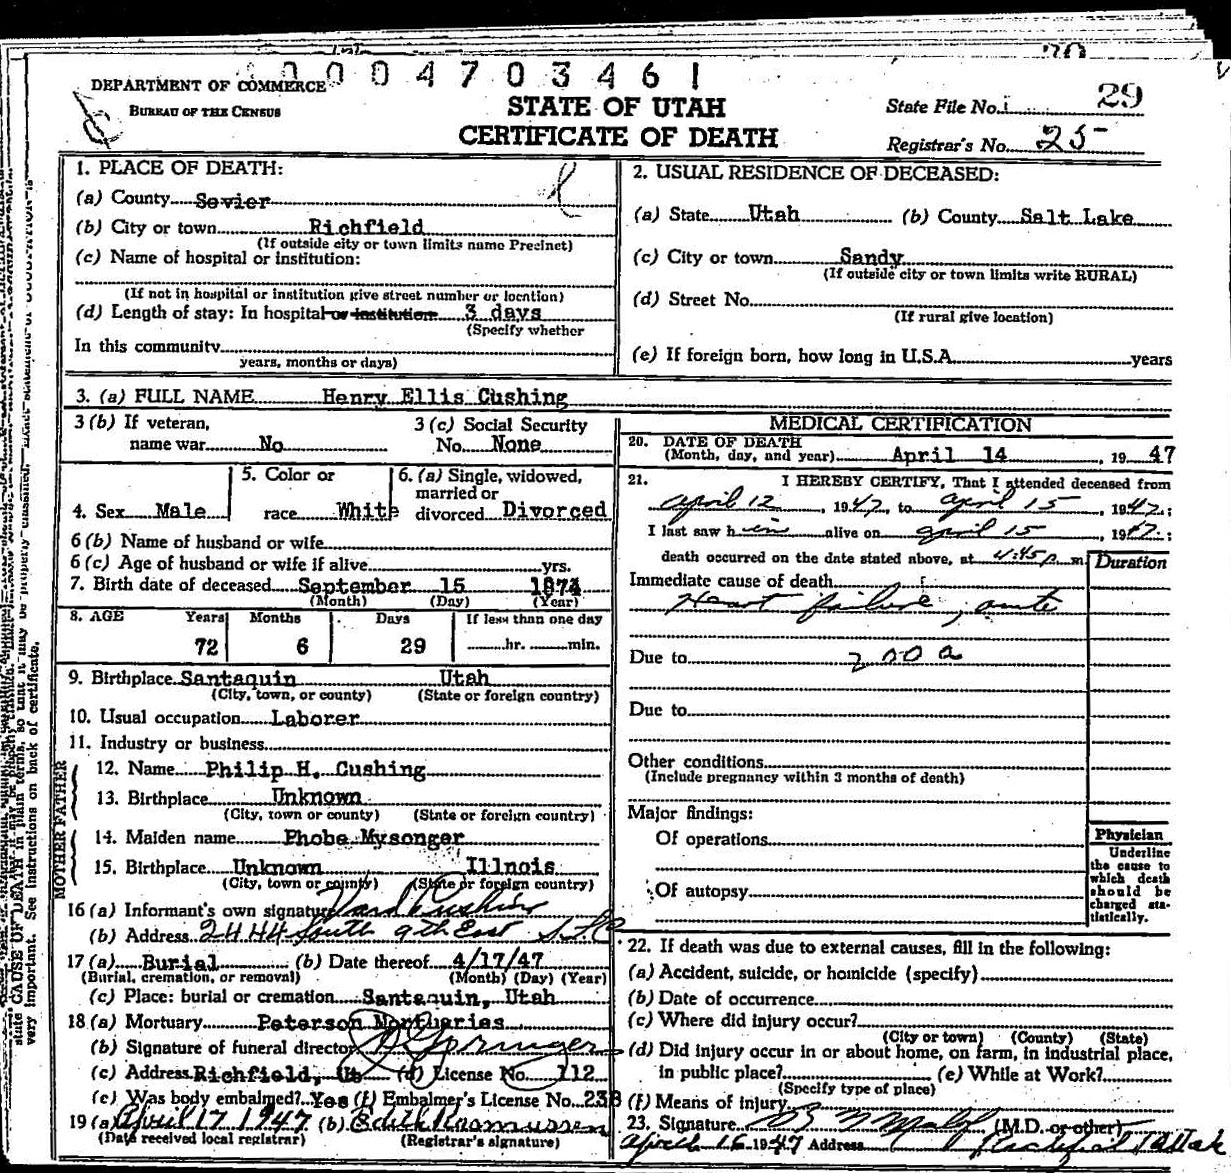 0004703461
DEPARTMENT OF COMMERCE
BUREAU OF THE CENSUS
STATE OF UTAH
CERTIFICATE OF DEATH
State File No. 29
Registrar's No. 25
1. PLACE OF DEATH:
(a) County Sevier
(b) City or town Richfield
(If outside city or town limits name Precinct)
(c) Name of hospital or institution:
(If not in hospital or institution give street number or location)
(d) Length of stay: In hospital or institution 3 days
(Specify whether
In this community
years, months or days)
2. USUAL RESIDENCE OF DECEASED:
(a) State Utah (b) County Salt Lake
(c) City or town Sandy
(If outside city or town limits write RURAL)
(d) Street No.
(If rural give location)
(e) If foreign born, how long in U.S.A. years
3. (a) FULL NAME Henry Ellis Cushing
3 (b) If veteran,
name war No
3 (c) Social Security
No. None
4. Sex Male
5. Color or
race White
6. (a) Single, widowed,
married or
divorced Divorced
6 (b) Name of husband or wife
6 (c) Age of husband or wife if alive yrs.
7. Birth date of deceased September 15 1874
(Month) (Day) (Year)
8. AGE Years Months Days If less than one day
72 6 29 hr. min.
9. Birthplace Santaquin Utah
(City, town, or county) (State or foreign country)
10. Usual occupation Laborer
11. Industry or business
FATHER
12. Name Philip H. Cushing
13. Birthplace Unknown
(City, town or county) (State or foreign country)
MOTHER
14. Maiden name Phobe Mysonger
15. Birthplace Unknown Illnois
(City, town or county) (State or foreign country)
16 (a) Informant's own signature Cushing
(b) Address 2444 South 9th East S.L.C
17 (a) Burial (b) Date thereof 4/17/47
(Burial, cremation, or removal) (Month) (Day) (Year)
(c) Place: burial or cremation Santaquin, Utah
18 (a) Mortuary Peterson Mortuaries
(b) Signature of funeral director Springer
(c) Address Richfield, Ut (d) License No. 112
(e) Was body embalmed? Yes (f) Embalmer's License No. 238
19 (a) April 17 1947 (b) Edith Rasmussen
(Date received local registrar) (Registrar's signature)
MEDICAL CERTIFICATION
20. DATE OF DEATH
(Month, day, and year) April 14, 1947
21. I HEREBY CERTIFY, That I attended deceased from
April 12, 1947, to April 15, 1947;
I last saw him alive on April 15, 1947;
death occurred on the date stated above, at 4:45 p. m.
Duration
Immediate cause of death
Heart failure, acute
Due to 200a
Due to
Other conditions
(Include pregnancy within 3 months of death)
Major findings:
Of operations
Of autopsy
Physician
Underline
the cause to
which death
should be
charged sta-
tistically.
22. If death was due to external causes, fill in the following:
(a) Accident, suicide, or homicide (specify)
(b) Date of occurrence
(c) Where did injury occur?
(City or town) (County) (State)
(d) Did injury occur in or about home, on farm, in industrial place,
in public place? (e) While at Work?
(Specify type of place)
(f) Means of injury
23. Signature (M.D. or other)
April 16 1947 Address Richfield Utah
state CAUSE OF DEATH in plain terms, so that it may be properly classified.
very important. See instructions on back of certificate.